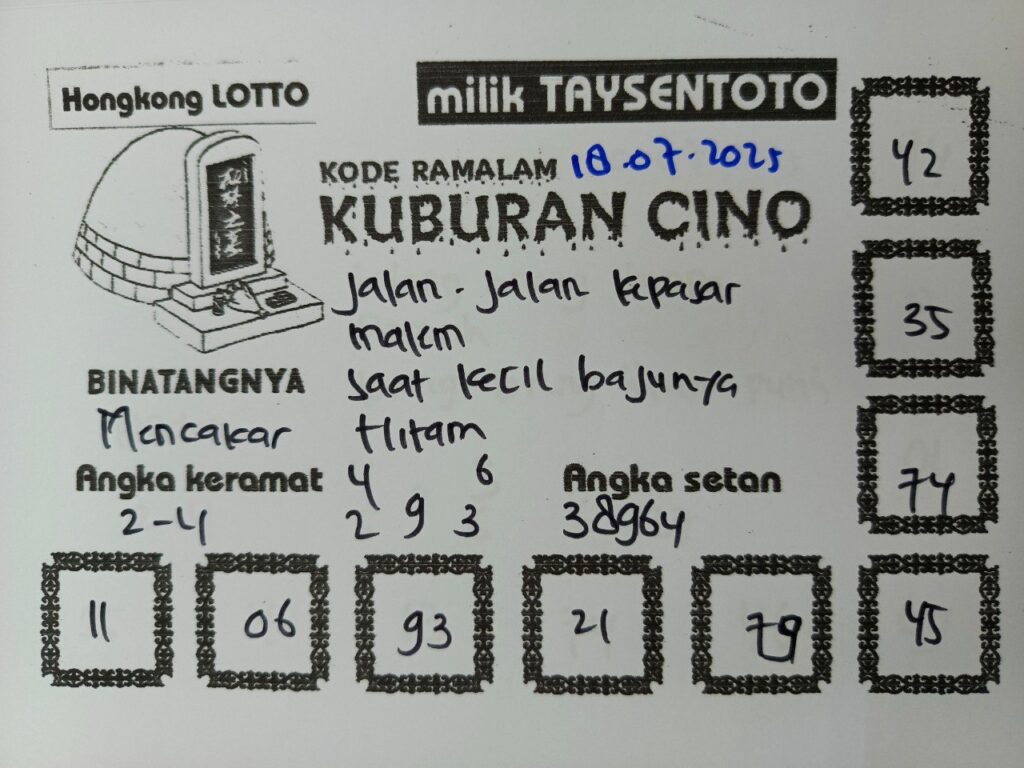 Hongkong LOTTO
milik TAYSENTOTO
KODE RAMALAM 18.07.2025
KUBURAN CINO
Jalan - Jalan kepasar
malam
saat kecil bajunya
Hitam
BINATANGNYA
Mencakar
Angka keramat
2-4
4 6
2 9 3
Angka setan
38964
42
35
74
11 06 93 21 79 45